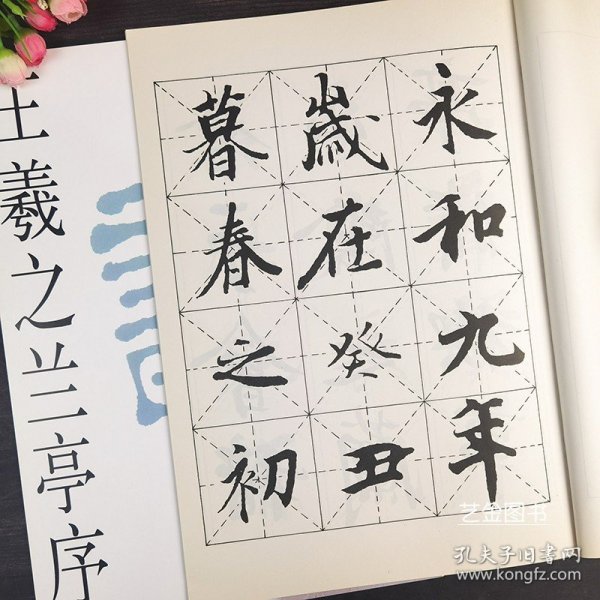 永和九年
歲在癸丑
暮春之初
王羲之兰亭序
艺金图书
孔夫子旧书网
www.kongfz.com